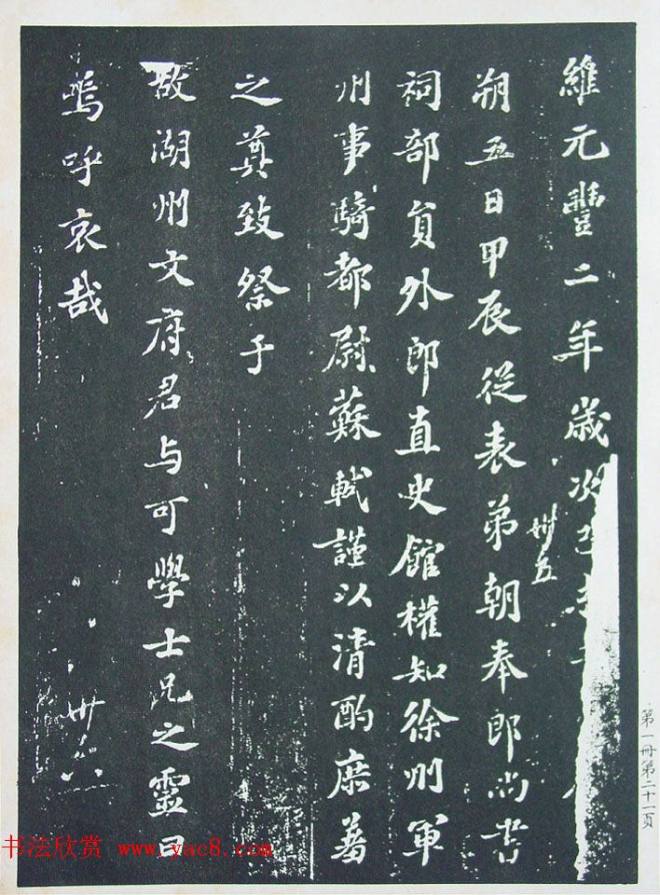 維元豐二年歲次
卅五
朔五日甲辰從表弟朝奉郎尚書
祠部員外郎直史館權知徐州軍
州事騎都尉蘇軾謹以清酌庶羞
之奠致祭于
故湖州文府君与可學士兄之靈曰
嗚呼哀哉
卅六
第一冊第二十一頁
书法欣赏 www.yac8.com